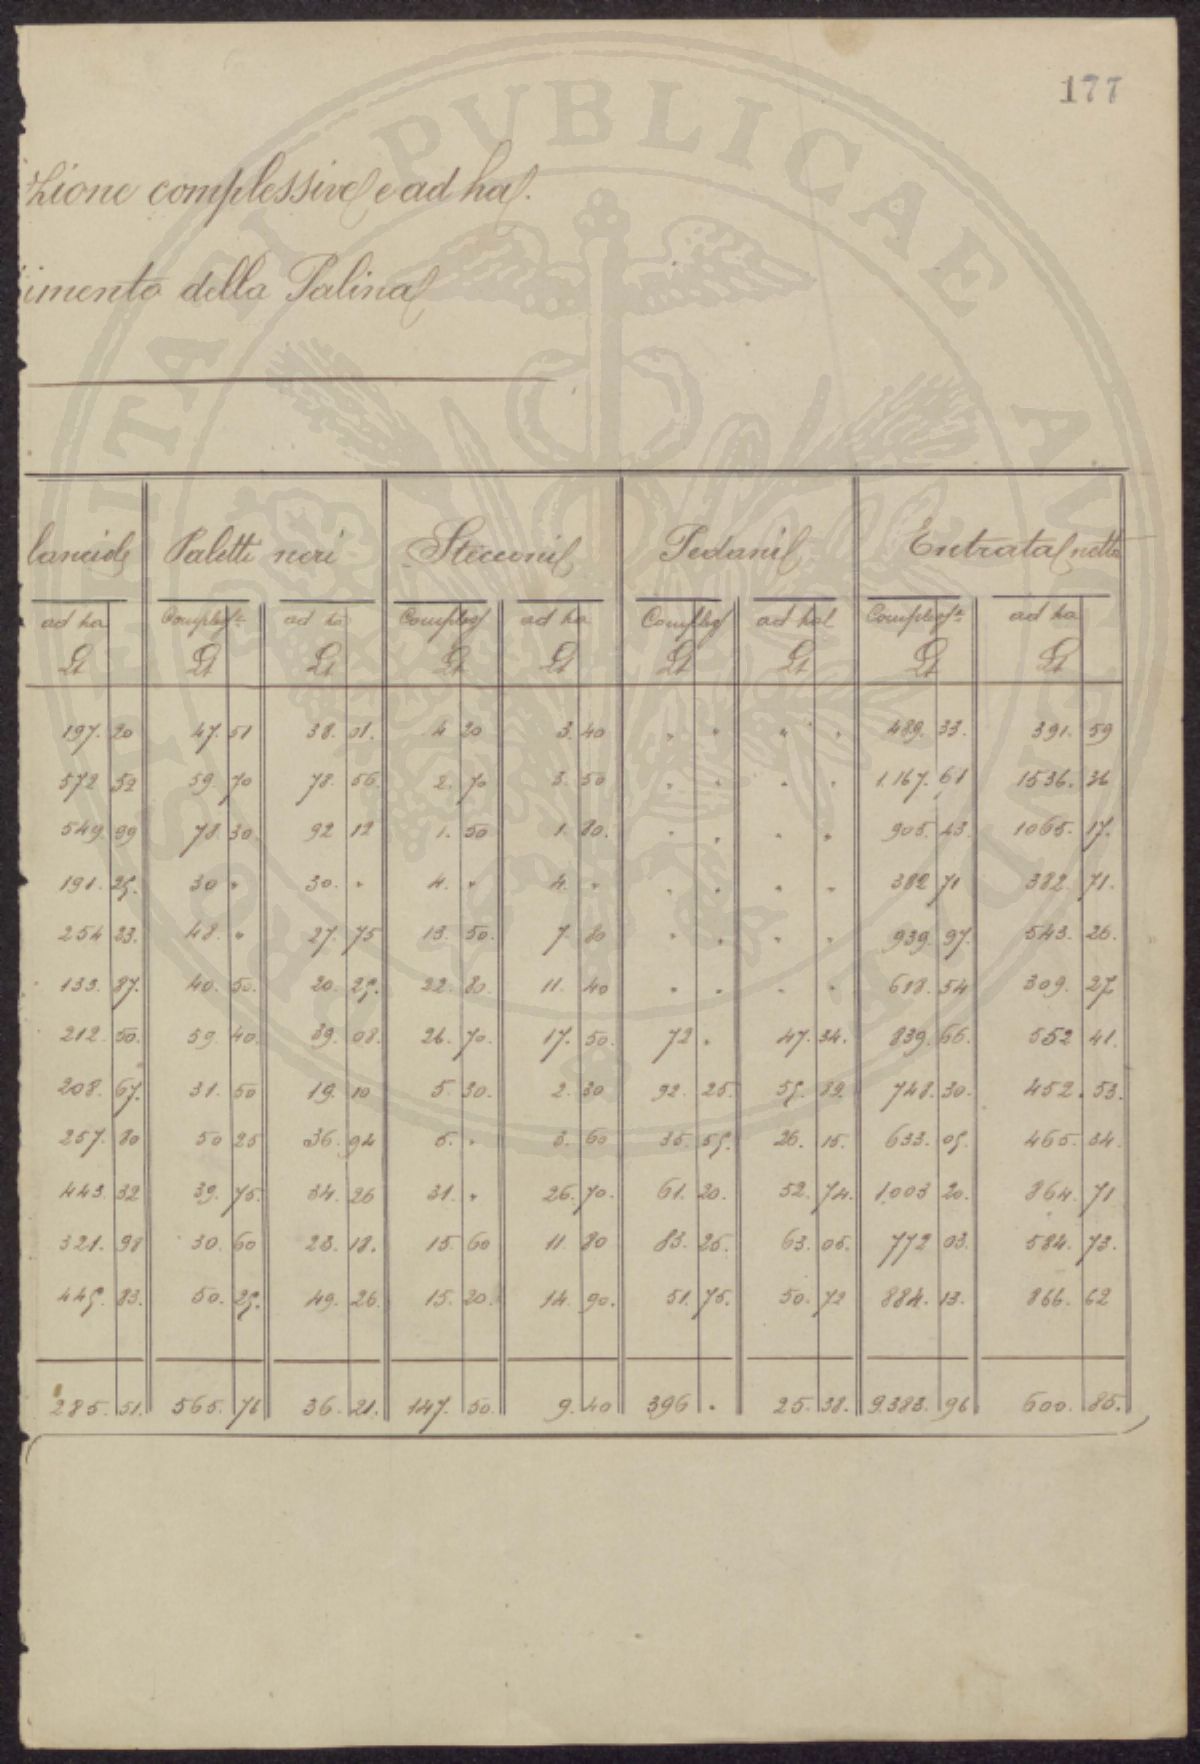 177
PVBLICAE
zione complessive e ad ha.
imento della Palina
lancide Paletti neri Stecconi Pedani Entrata netta
ad ha Compless.a ad ha Compless ad ha Compless ad ha Compless.a ad ha
Lt Lt Lt Lt Lt Lt Lt Lt Lt
197. 20 47. 51 38. 01. 4 20 3. 40 " " " " 489. 33. 391. 59
572 52 59. 70 78. 56 2. 70 3. 50 " " " " 1.167. 61 1536. 36
549. 99 78. 30. 92 12 1. 50 1. 80. " " " " 905. 43. 1065. 17.
191. 25. 30 " 30. " 4. " 4. " " " " " 382 71 382. 71.
254 23. 48. " 27. 75 13. 50. 7. 80 " " " " 939. 97. 543. 26.
133. 87. 40. 50. 20. 25. 22. 80. 11. 40 " " " " 618. 54 309. 27
212. 50. 59. 40. 39. 08. 26. 70. 17. 50. 72 " 47. 34. 839. 66. 552 41.
208. 67. 31. 50 19. 10 5. 30. 2. 30 92. 25. 55. 89. 748. 30. 452. 53.
257. 80 50 25 36. 94 5. " 3. 60 35. 55. 26. 15. 633. 05. 465. 34.
443. 32 39. 75. 34. 26 31. " 26. 70. 61. 20. 52. 74. 1.003 20. 864. 71
321. 98 30. 60 23. 18. 15. 60 11. 80 83. 25. 63. 05. 772 03. 584. 73.
445. 83. 50. 25. 49. 26. 15. 20. 14. 90. 51. 75. 50. 72 884. 13. 866. 62
285. 51. 565. 76 36. 21. 147. 50. 9. 40 396 " 25. 38. 9.383. 96 600. 85.